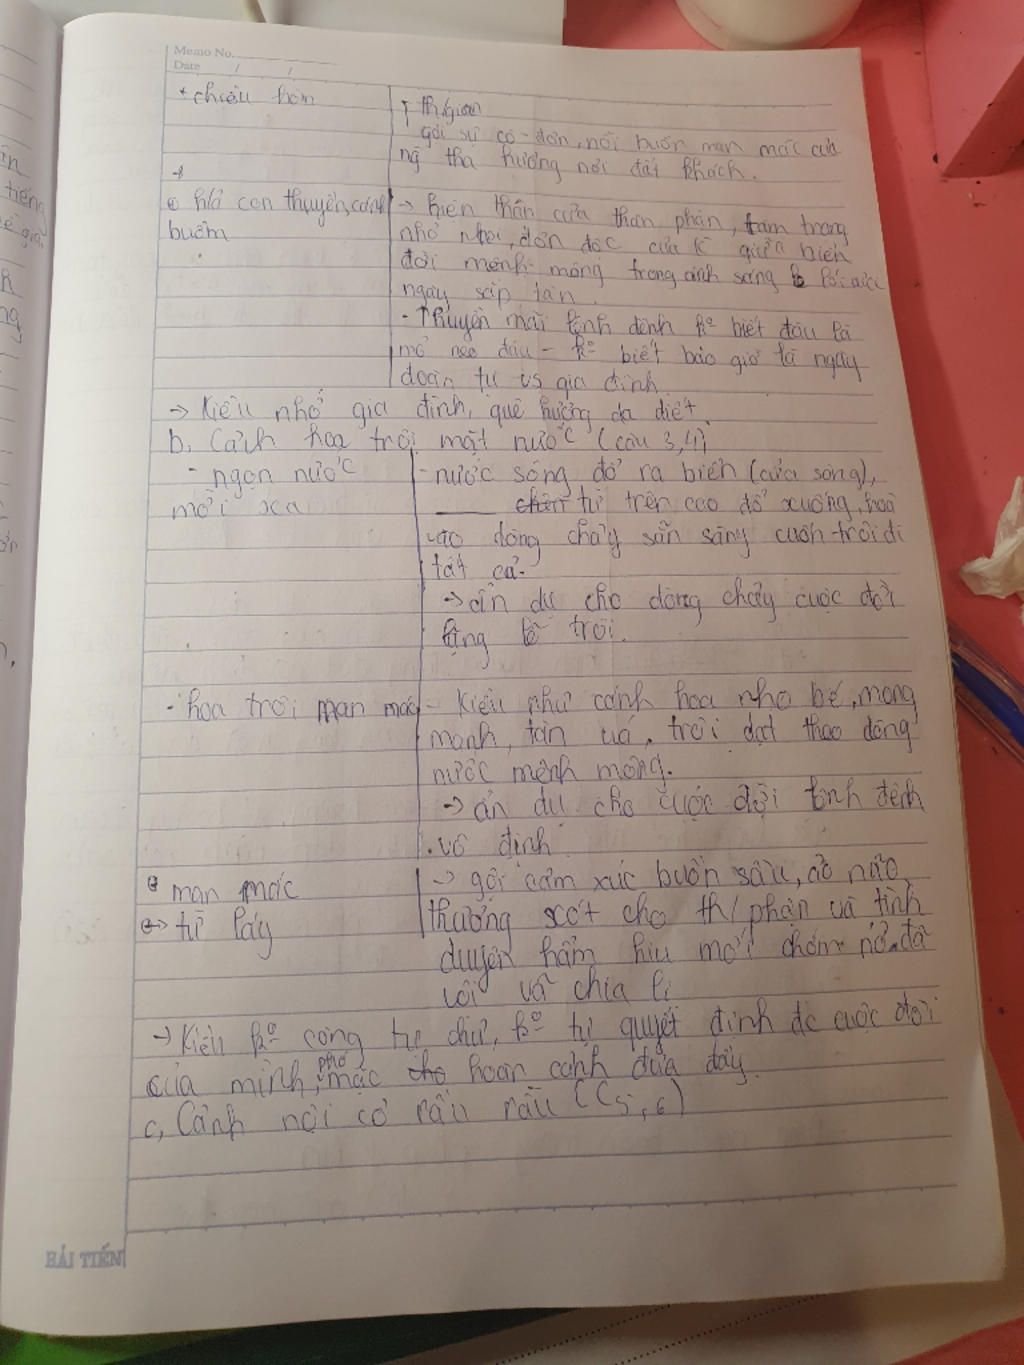 Memo No.
Date / /
+ chiều hôm
→ th/gian
gợi sự cô-đơn, nỗi buồn man mác của
ng tha hương nơi đất khách.
h/ả con thuyền, cánh
buồm
→ hiện thân của thân phận, tâm trạng
nhỏ nhoi, đơn độc của K giữa biển
đời mênh mông trong ánh sáng le lói lúc
ngày sắp tàn.
- Thuyền mãi lênh đênh ko biết đâu là
mỏ neo đậu - ko biết bảo giờ là ngày
đoàn tụ vs gia đình
→ Kiều nhớ gia đình, quê hương da diết
b, Cảnh hoa trôi mặt nước (câu 3,4)
- ngọn nước
mới xa
- nước sông đổ ra biển (cửa sông),
từ trên cao đổ xuống, hoà
vào dòng chảy sẵn sàng cuốn trôi đi
tất cả.
→ ẩn dụ cho dòng chảy cuộc đời
lặng lẽ trôi.
- hoa trôi man mác
- Kiều như cánh hoa nhỏ bé, mong
manh, tàn úa, trôi dạt theo dòng
nước mênh mông.
→ ẩn dụ cho cuộc đời lênh đênh
vô định
man mác
→ từ láy
→ gợi cảm xúc buồn sầu, ảo não
thương xót cho th/phận và tình
duyên hẩm hiu mới chớm nở đã
vội vã chia li
→ Kiều ko còng tự chủ, ko tự quyết định đc cuộc đời
của mình, phó mặc cho hoàn cảnh đưa đẩy
c, Cảnh nội cỏ rầu rầu (C5,6)
HẢI TIẾN